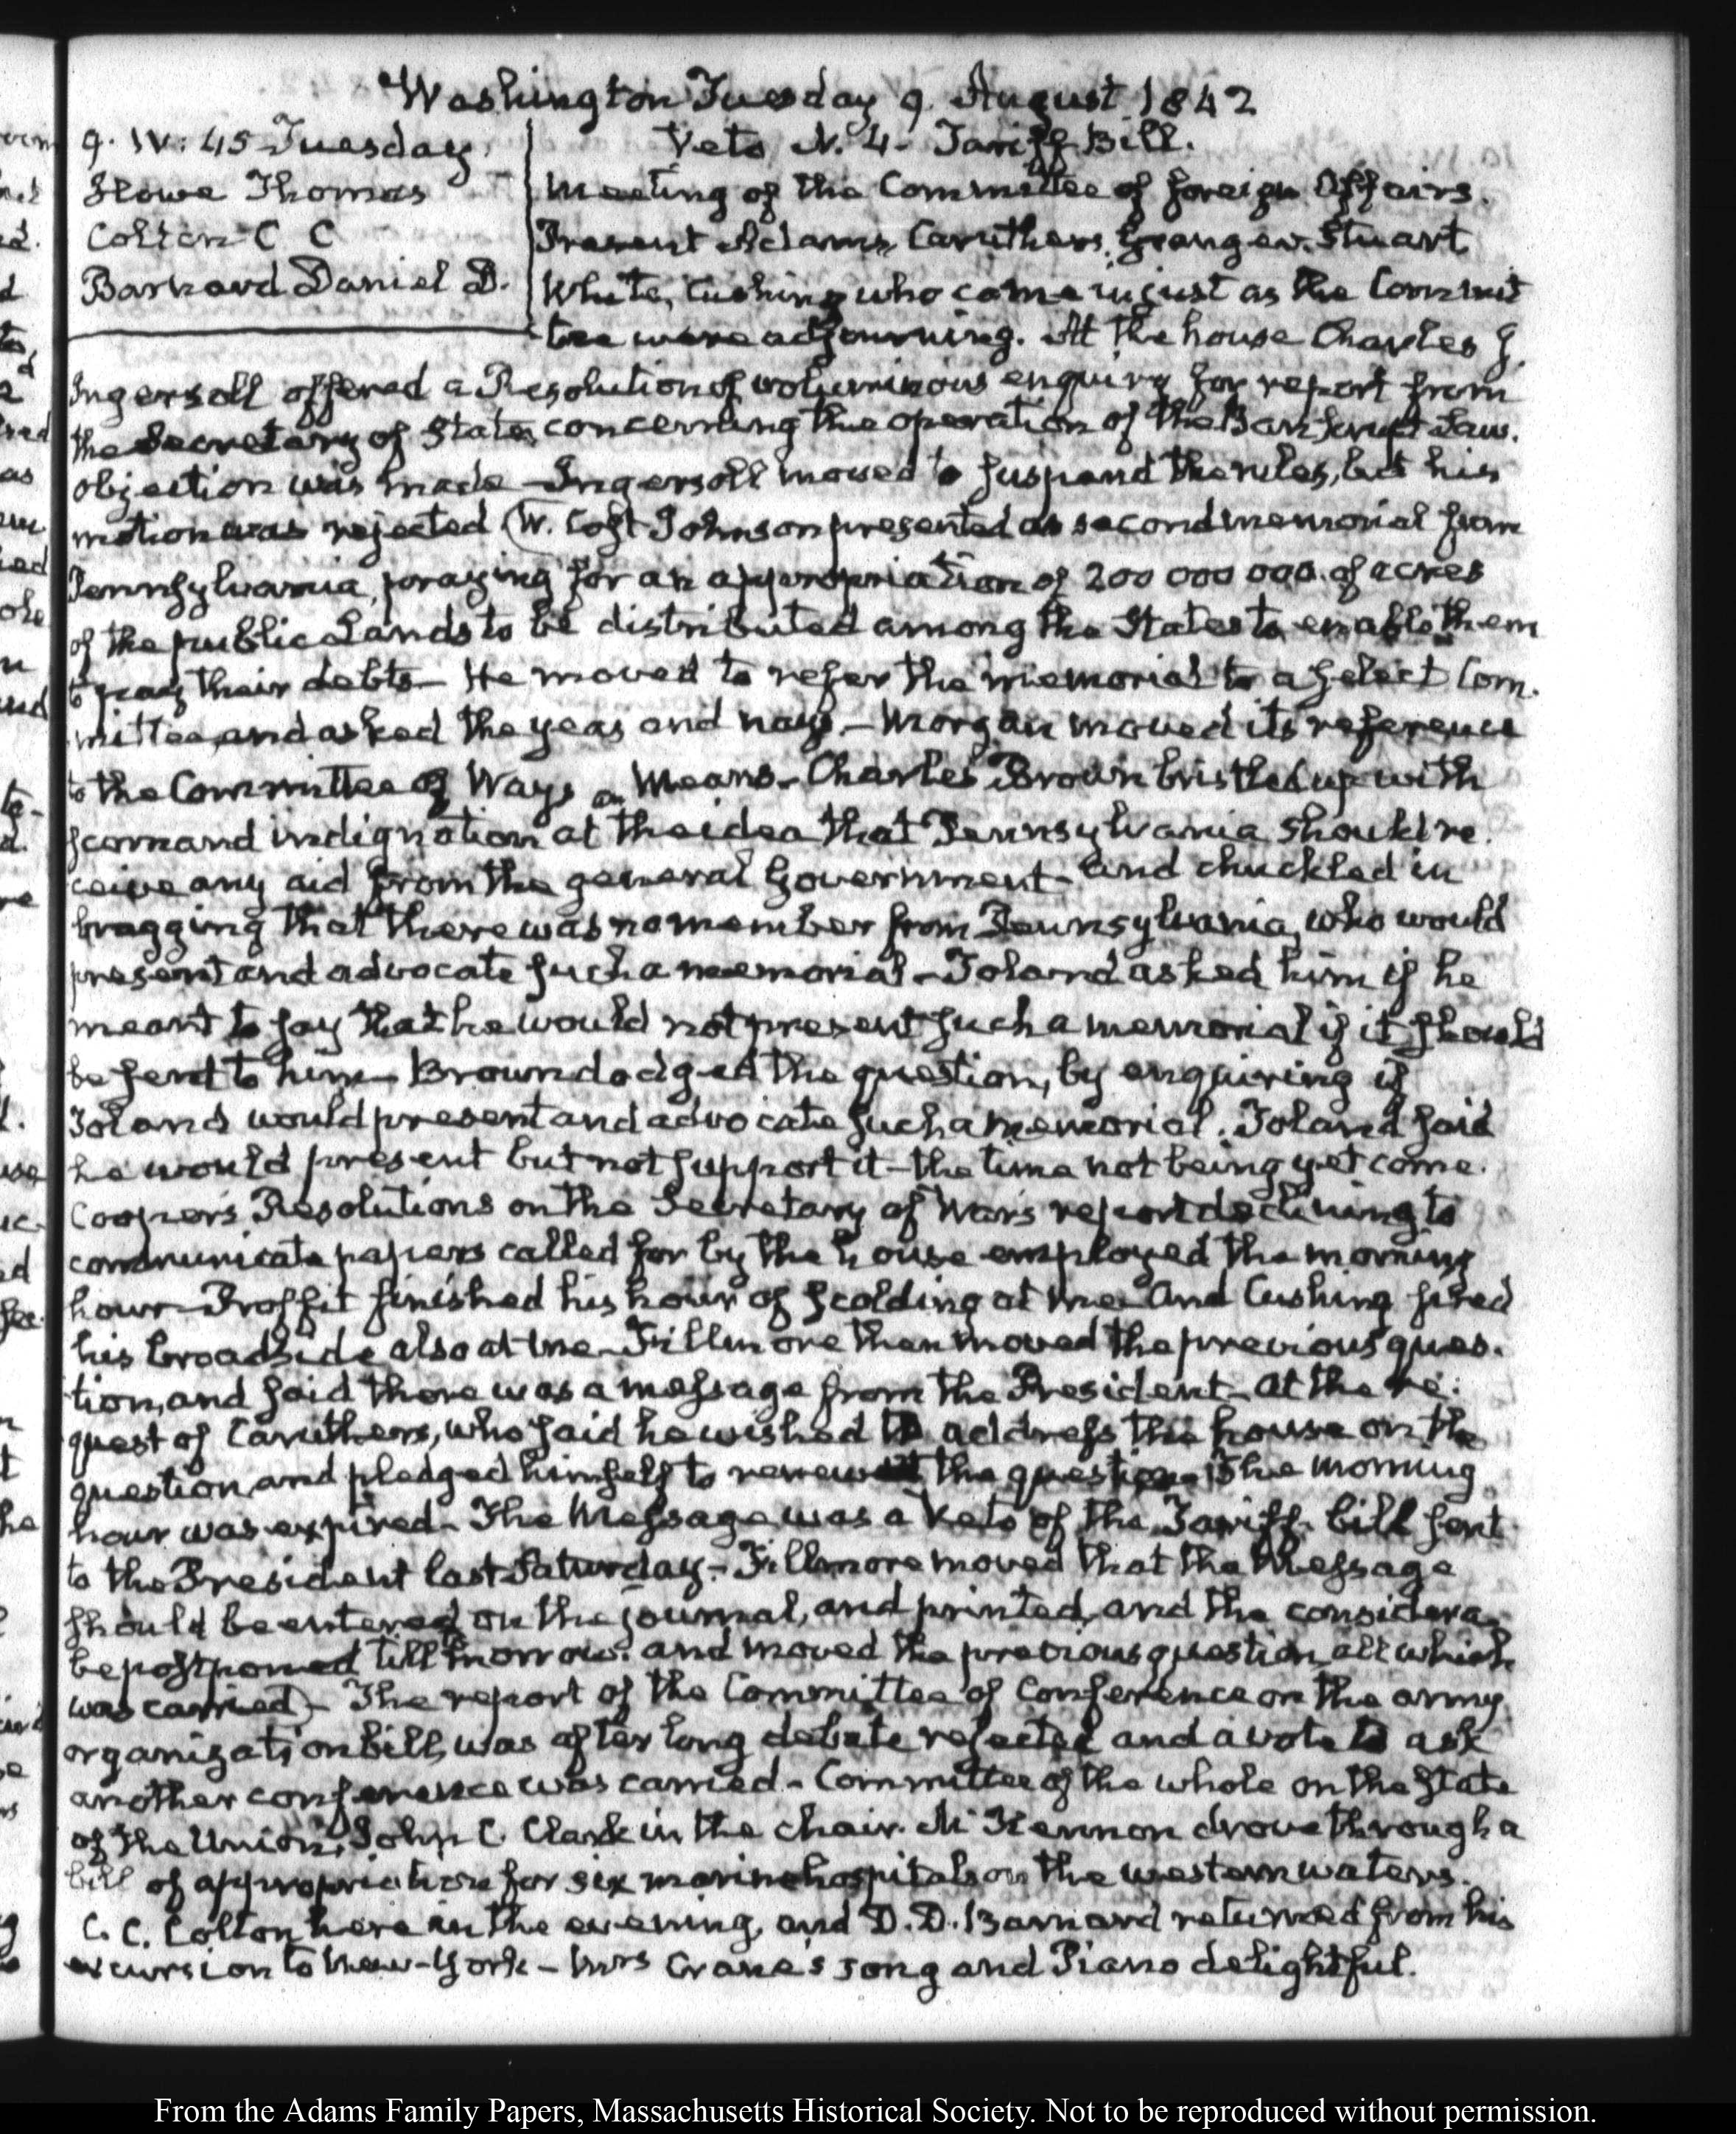 Washington Tuesday 9. August 1842
9. IV: 45 Tuesday
Howe Thomas
Colton C C
Barnard Daniel D.
Veto N. 4 - Tariff Bill.
Meeting of the Committee of foreign Affairs.
Present Adams, Caruthers, Granger. Stuart
White, Cushing who came in just as the Commit
tee were adjourning. At the house Charles J.
Ingersoll offered a Resolution of voluminous enquiry for report from
the Secretary of State, concerning the operation of the Bankrupt Law.
objection was made - Ingersoll moved to suspend the rules, but his
motion was rejected (W. Cost Johnson presented a second memorial from
Pennsylvania, praying for an appropriation of 200 000 000. of acres
of the public Lands to be distributed among the States to enable them
to pay their debts - He moved to refer the memorial to a select Com.
mittee, and asked the yeas and nays. - Morgan moved its reference
to the Committee of Ways & Means - Charles Brown bristled up with
scorn and indignation at the idea that Pennsylvania should re.
ceive any aid from the general Government - and chuckled in
bragging that there was no member from Pennsylvania, who would
present and advocate such a memorial - Toland asked him if he
meant to say that he would not present such a memorial if it should
be sent to him - Brown dodged the question, by enquiring if
Toland would present and advocate such a memorial. Toland said
he would present but not support it - the time not being yet come.
Cooper's Resolutions on the Secretary of War's report declining to
communicate papers called for by the house employed the morning
hour - Proffit finished his hour of scolding at me - And Cushing fired
his broadside also at me - Fillmore then moved the previous ques.
tion, and said there was a message from the President - at the re:
quest of Caruthers, who said he wished to address the house on the
question, and pledged himself to renew the question the morning
hour was expired - The Message was a Veto of the Tariff bill sent
to the President last Saturday. - Fillmore moved that the Message
should be entered on the journal, and printed, and the considera.
be postponed till morrow. and moved the previous question, all which
was carried) - The report of the Committee of Conference on the army
organization bill, was after long debate rejected and a vote to ask
another conference was carried. - Committee of the whole on the State
of the Union, John C. Clark in the chair. McKennon drove through a
bill of appropriation for six marine hospitals on the western waters.
C. C. Colton here in the evening, and D. D. Barnard returned from his
excursion to New-York - Mrs Crane's song and Piano delightful.
From the Adams Family Papers, Massachusetts Historical Society. Not to be reproduced without permission.